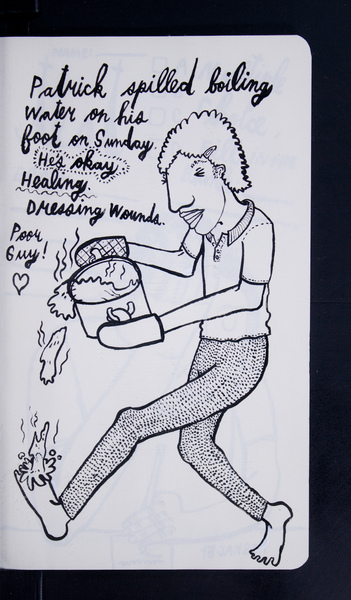 Patrick spilled boiling
Water on his
foot on Sunday.
He's okay
Healing.
Dressing Wounds.
Poor
Guy!